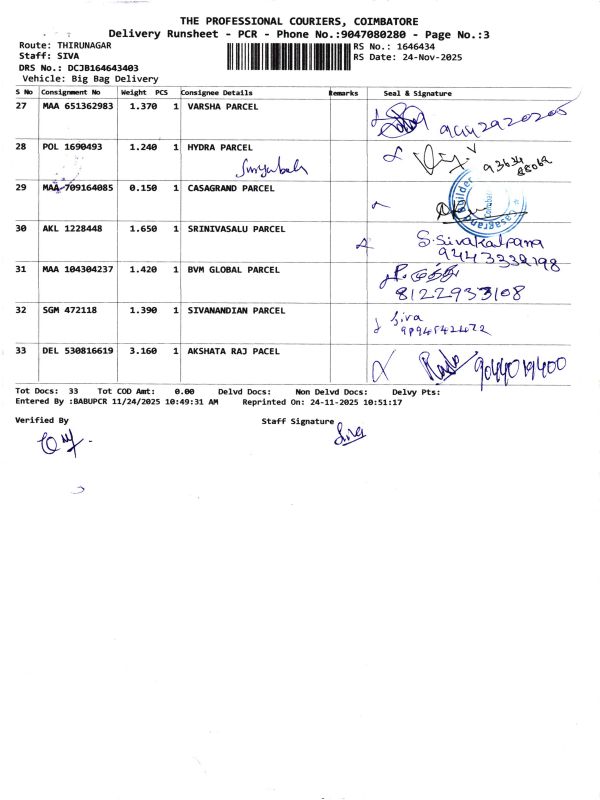 THE PROFESSIONAL COURIERS, COIMBATORE
Delivery Runsheet - PCR - Phone No.:9047080280 - Page No.:3
Route: THIRUNAGAR RS No.: 1646434
Staff: SIVA RS Date: 24-Nov-2025
DRS No.: DCJB164643403
Vehicle: Big Bag Delivery
S No Consignment No Weight PCS Consignee Details Remarks Seal & Signature
27 MAA 651362983 1.370 1 VARSHA PARCEL
28 POL 1690493 1.240 1 HYDRA PARCEL
29 MAA 709164085 0.150 1 CASAGRAND PARCEL
30 AKL 1228448 1.650 1 SRINIVASALU PARCEL S.Sivakalpana
9443332198
31 MAA 104304237 1.420 1 BVM GLOBAL PARCEL
8122933108
32 SGM 472118 1.390 1 SIVANANDIAN PARCEL Siva
33 DEL 530816619 3.160 1 AKSHATA RAJ PACEL 9044019400
Tot Docs: 33 Tot COD Amt: 0.00 Delvd Docs: Non Delvd Docs: Delvy Pts:
Entered By :BABUPCR 11/24/2025 10:49:31 AM Reprinted On: 24-11-2025 10:51:17
Verified By Staff Signature
Siva